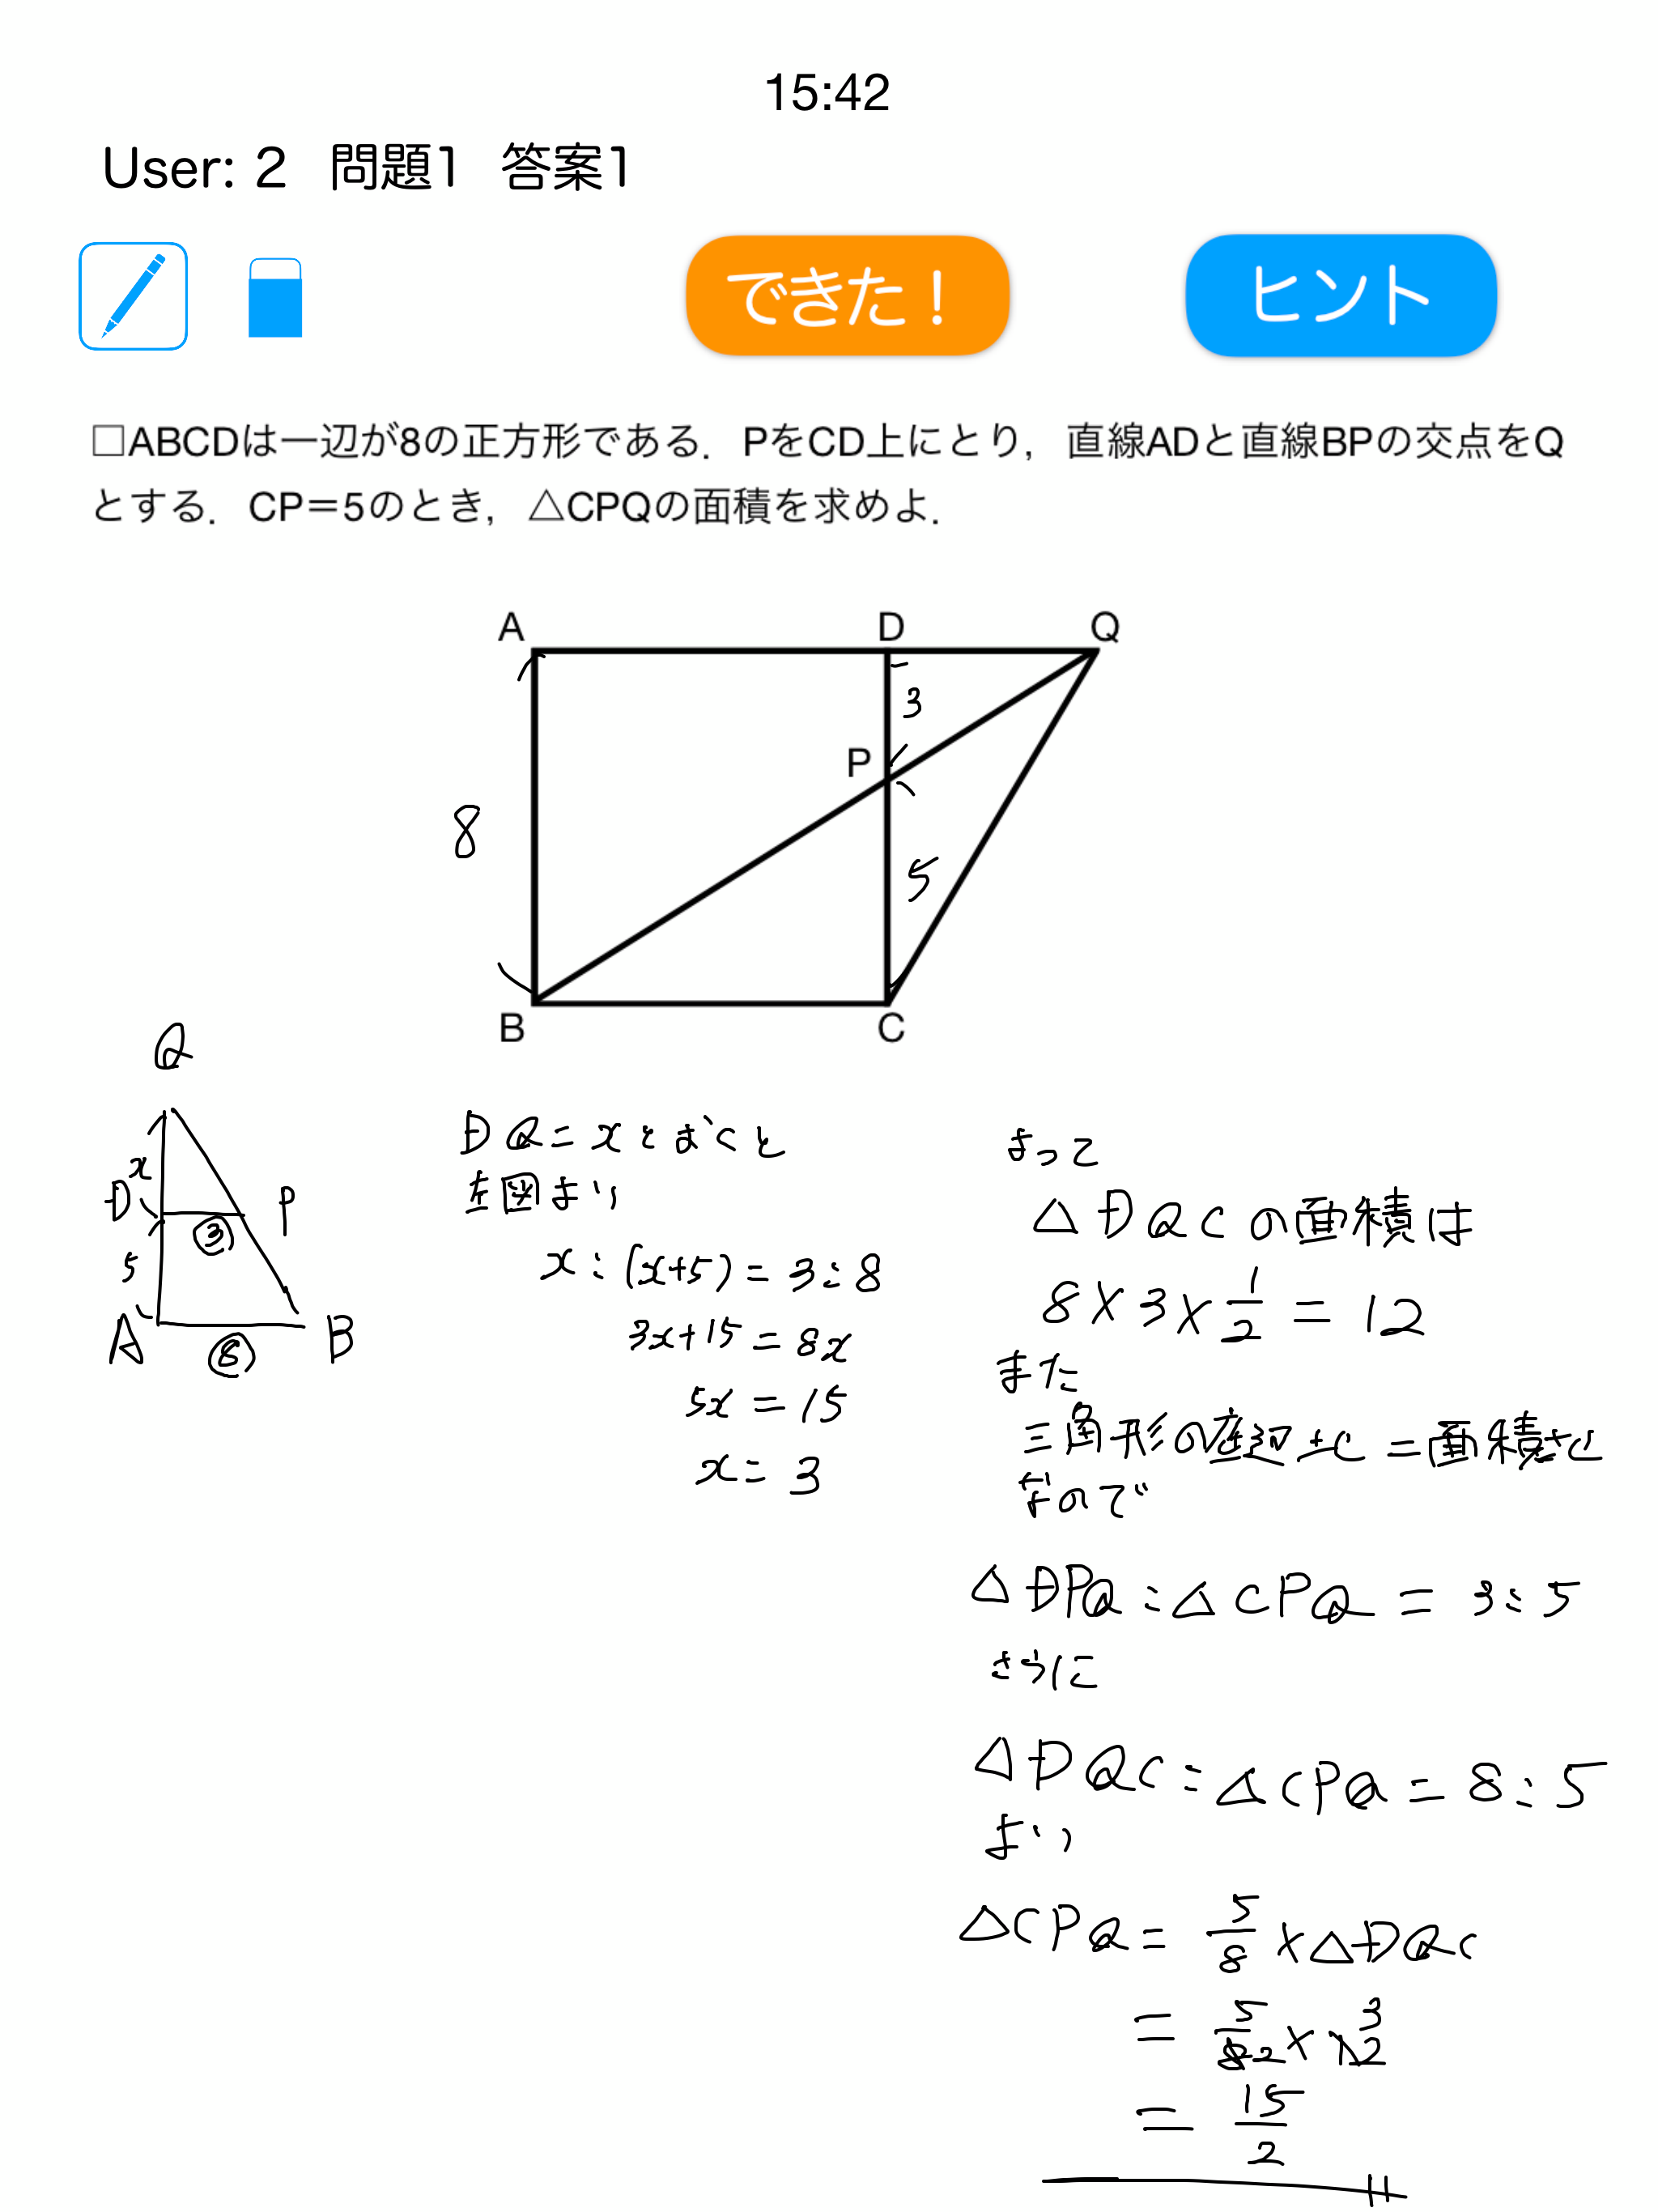 15:42
User: 2 問題1 答案1
できた！
ヒント
□ABCDは一辺が8の正方形である．PをCD上にとり，直線ADと直線BPの交点をQ
とする．CP＝5のとき，△CPQの面積を求めよ．
A
D
Q
3
P
8
5
B
C
Q
x
D
P
③
5
A
B
⑧
DQ=xとおくと
左図より
x:(x+5)=3:8
3x+15=8x
5x=15
x=3
よって
△DQCの面積は
8×3×1/2=12
また
三角形の底辺比=面積比
なので
△DPQ:△CPQ=3:5
さらに
△DQC:△CPQ=8:5
より
△CPQ=5/8×△DQC
=5/8 2×12 3
=15/2